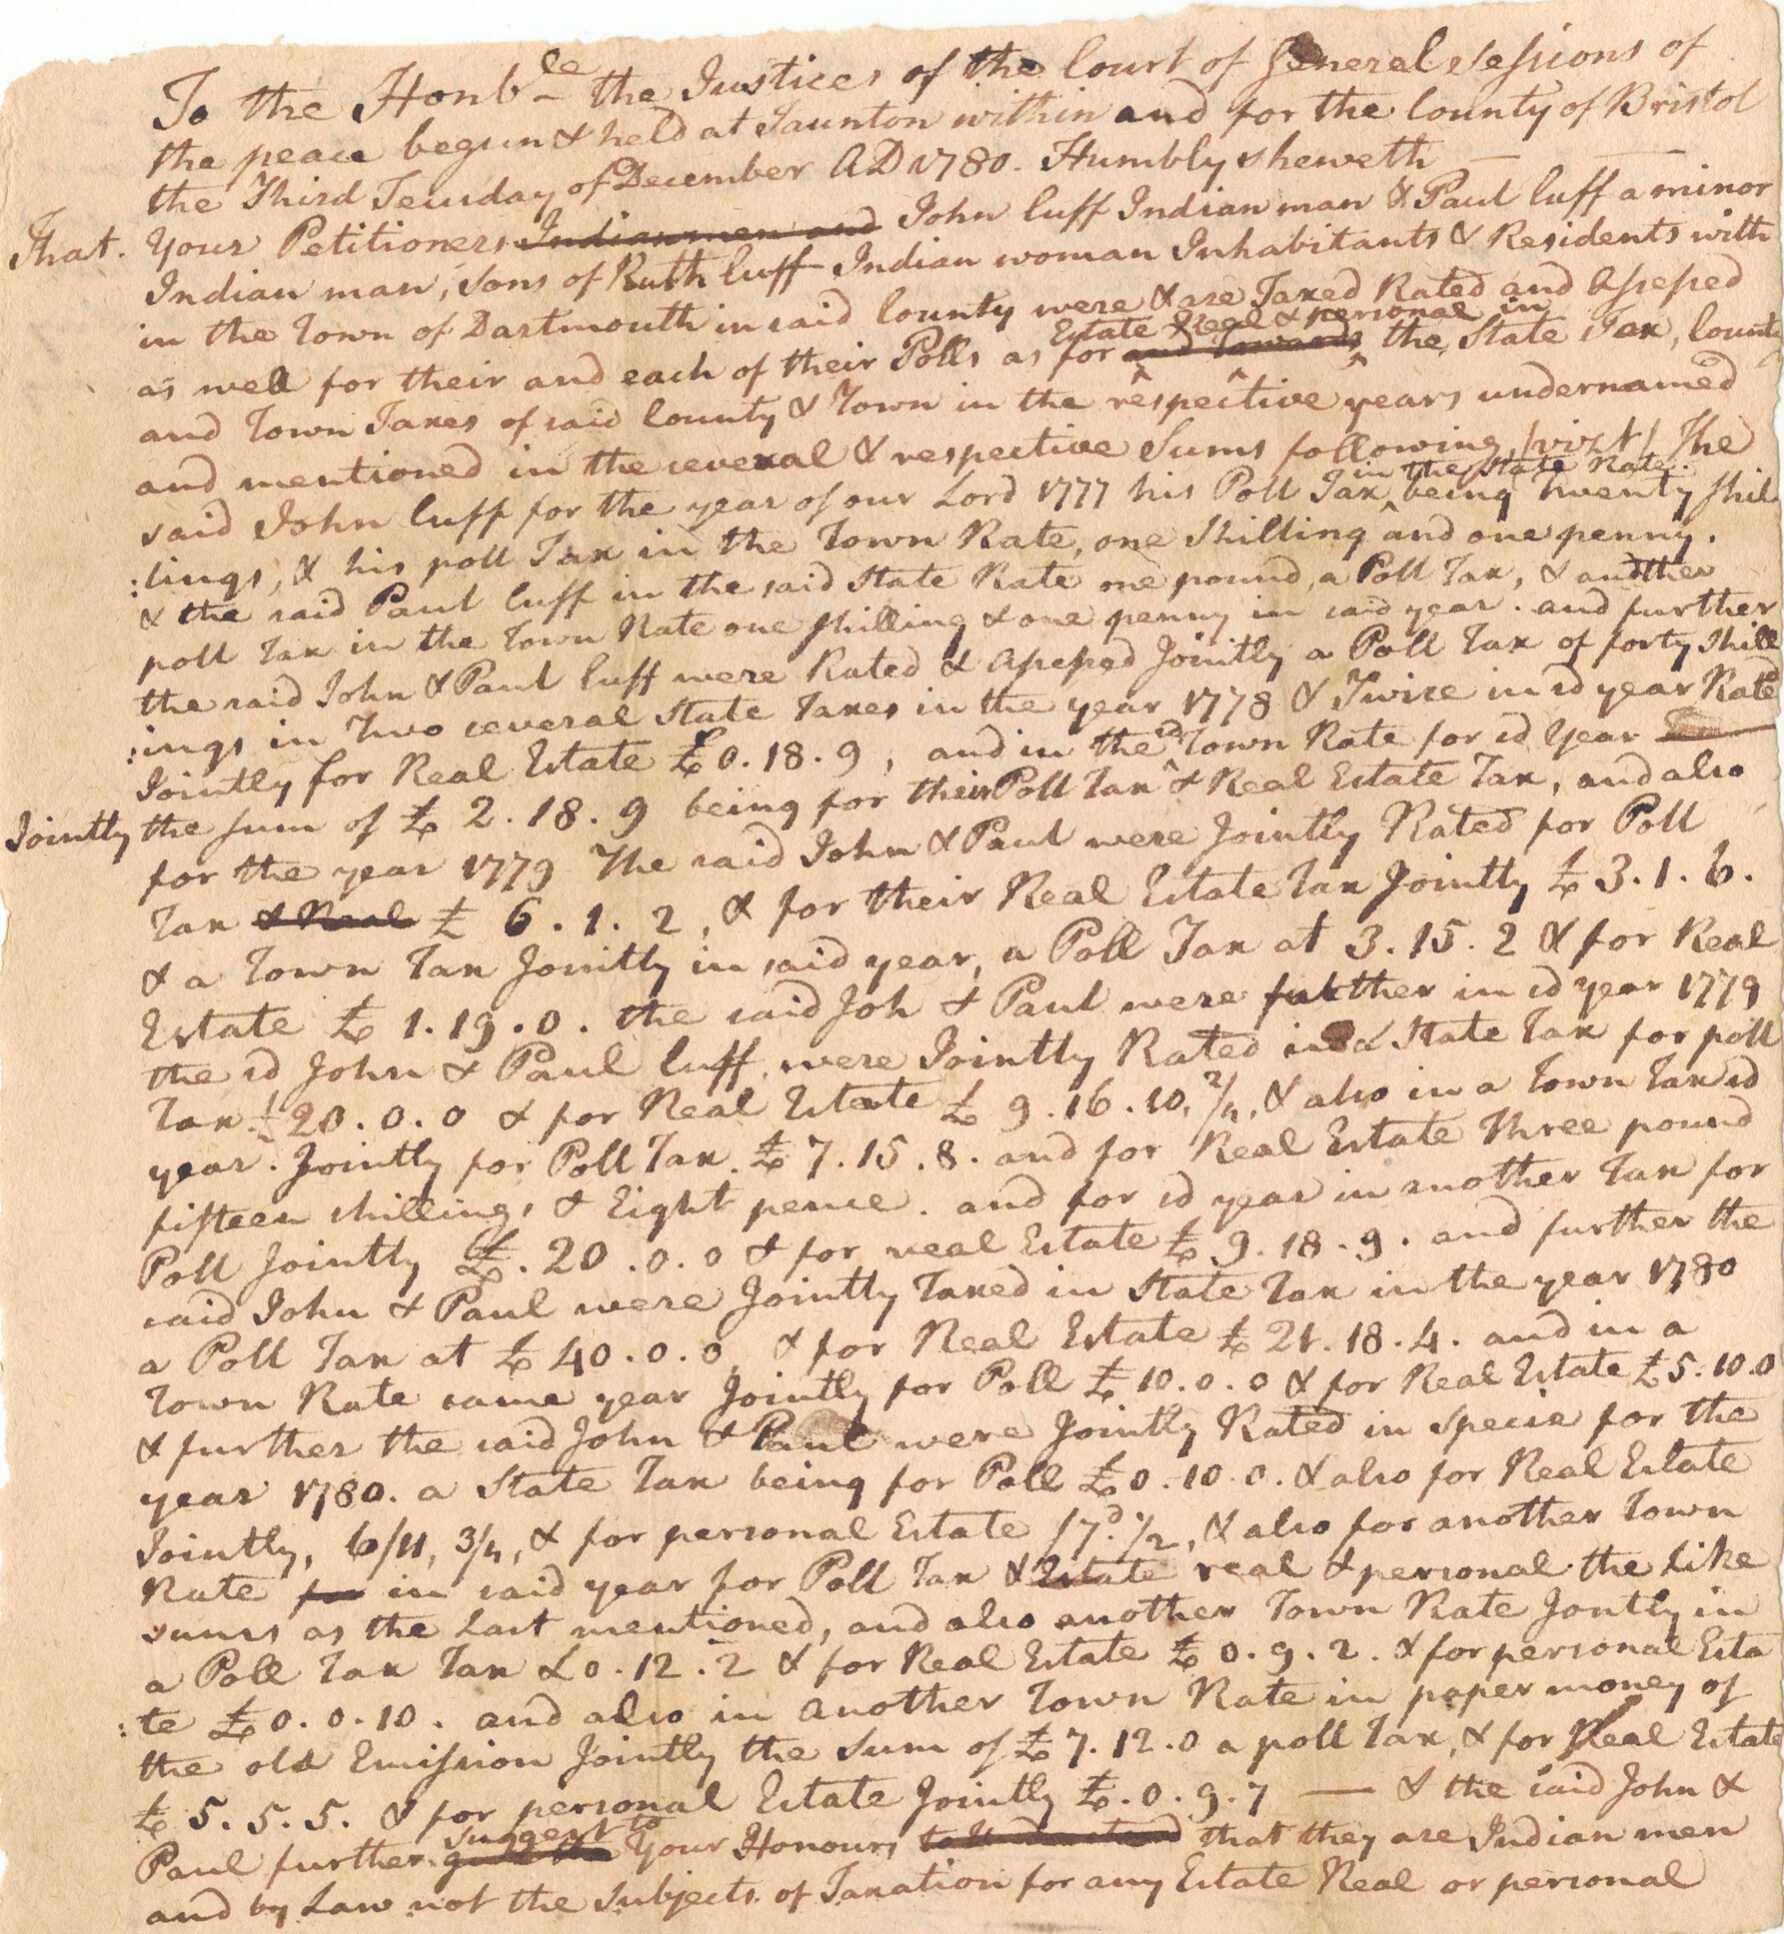 To the Honble the Justices of the Court of General Sessions of
the peace begun & held at Taunton within and for the County of Bristol
the Third Teusday of December AD 1780. Humbly sheweth
That. Your Petitioners Indianmen and John Cuff Indian man & Paul Cuff a minor
Indian man, sons of Ruth Cuff Indian woman Inhabitants & Residents with
in the Town of Dartmouth in said County were & are Taxed Rated and Assessed
Estate Real & personal in
as well for their and each of their Polls as for and Towards the State Tax, County
and Town Taxes of said County & Town in the respective years undernamed
and mentioned in the several & respective Sums following, (vizt) The
in the State Rate.
said John Cuff for the year of our Lord 1777 his Poll Tax being Twenty shil
:lings, & his poll Tax in the Town Rate, one Shilling and one penny.
& the said Paul Cuff in the said State Rate one pound, a Poll Tax, & another
poll Tax in the Town Rate one shilling & one penny in said year. and further
the said John & Paul Cuff were Rated & Assessed Jointly a Poll Tax of forty Shill
:ings in Two several State Taxes in the year 1778 & Twice in sd year Rated
Jointly for Real Estate £0.18.9, and in the sd Town Rate for sd Year
Jointly the sum of £ 2.18.9 being for their Poll Tax & Real Estate Tax, and also
for the year 1779 The said John & Paul were Jointly Rated for Poll
Tax & Real £ 6.1.2, & for their Real Estate Tax Jointly £ 3.1.6.
& a Town Tax Jointly in said year, a Poll Tax at 3.15.2 & for Real
Estate £ 1.19.0. the said Joh & Paul were further in sd year 1779
the sd John & Paul Cuff, were Jointly Rated in a State Tax for poll
Tax £20.0.0 & for Real Estate £ 9.16.10, 2/4, & also in a Town Tax sd
year. Jointly for Poll Tax £ 7.15.8. and for Real Estate Three pound
fifteen shillings & Eight pence. and for sd year in another Tax for
Poll Jointly £.20.0.0 & for real Estate £ 9.18.9. and further the
said John & Paul were Jointly Taxed in State Tax in the year 1780
a Poll Tax at £ 40.0.0, & for Real Estate £ 21.18.4. and in a
Town Rate same year Jointly for Poll £ 10.0.0 & for Real Estate £5.10.0
& further the said John & Paul were Jointly Rated in specie for the
year 1780. a State Tax being for Poll £0.10.0. & also for Real Estate
Jointly, 6/11, 3/4, & for personal Estate /7d.1/2, & also for another Town
Rate for in said year for Poll Tax & Estate real & personal the like
sums as the Last mentioned, and also another Town Rate Jontly in
a Poll Tax Tax £0.12.2 & for Real Estate £ 0.9.2. & for personal Esta
:te £0.0.10. and also in another Town Rate in paper money of
the old Emission Jointly the Sum of £ 7.12.0 a poll Tax, & for Real Estate
£ 5.5.5. & for personal Estate Jointly £.0.9.7 — & the said John &
suggest to
Paul further Your Honours that they are Indian men
and by Law not the Subjects of Taxation for any Estate Real or personal